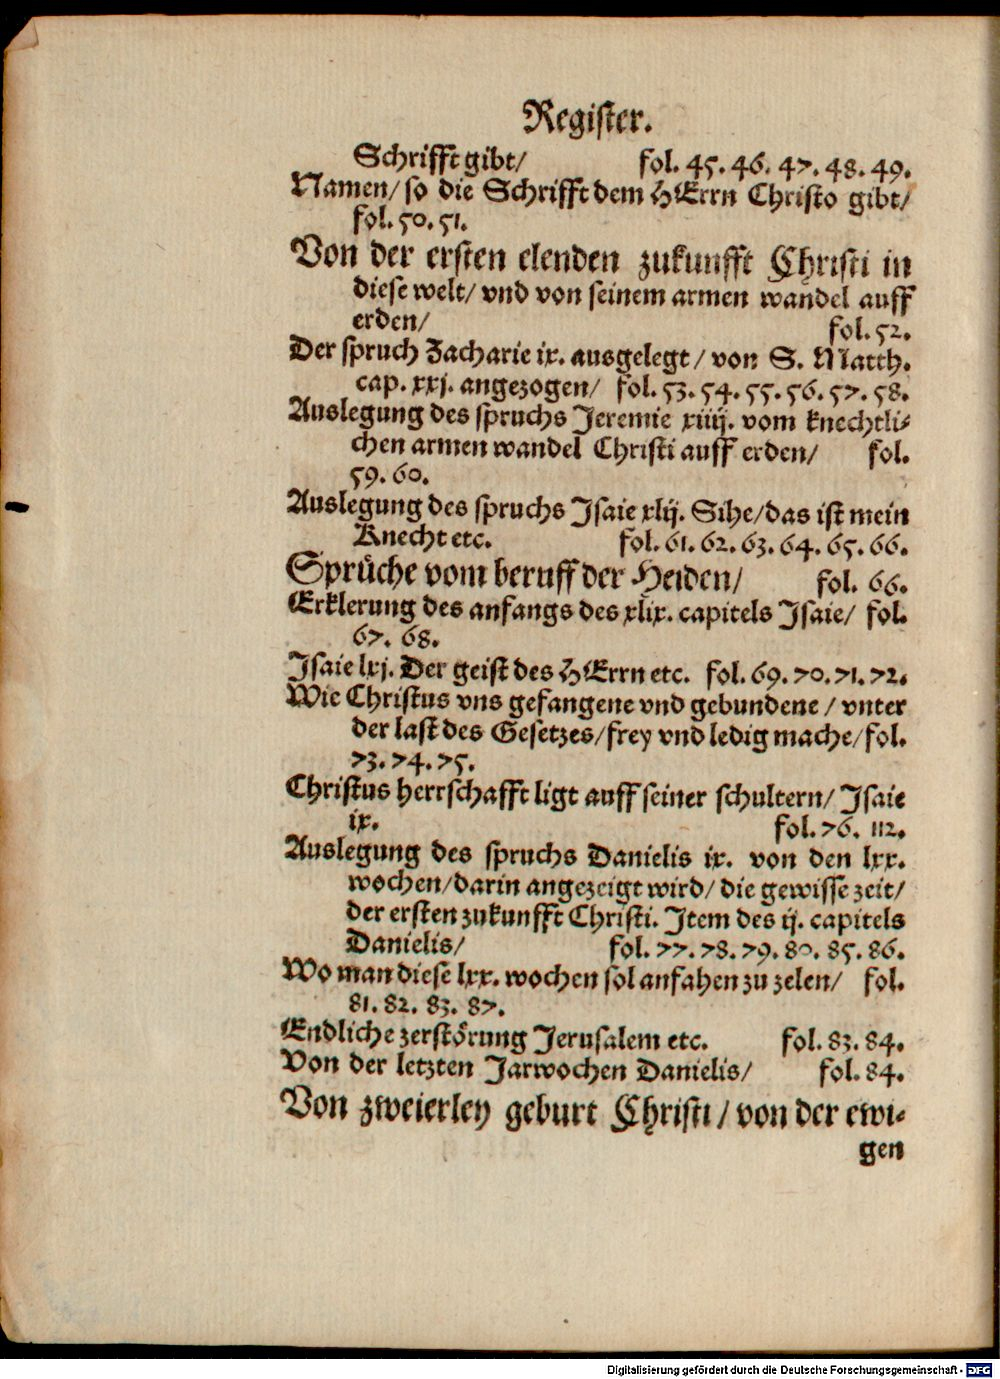 Register.
Schrifft gibt/ fol. 45. 46. 47. 48. 49.
Namen/ so die Schrifft dem HErrn Christo gibt/
fol. 50. 51.
Von der ersten elenden zukunfft Christi in
diese welt/ vnd von seinem armen wandel auff
erden/ fol. 52.
Der spruch Zacharie ix. ausgelegt/ von S. Matth.
cap. xxj. angezogen/ fol. 53. 54. 55. 56. 57. 58.
Auslegung des spruchs Jeremie xiiij. vom knechtli-
chen armen wandel Christi auff erden/ fol.
59. 60.
Auslegung des spruchs Jsaie xlij. Sihe/das ist mein
Knecht etc. fol. 61. 62. 63. 64. 65. 66.
Sprüche vom beruff der Heiden/ fol. 66.
Erklerung des anfangs des xlix. capitels Jsaie/ fol.
67. 68.
Jsaie lxj. Der geist des HErrn etc. fol. 69. 70. 71. 72.
Wie Christus vns gefangene vnd gebundene/ vnter
der last des Gesetzes/frey vnd ledig mache/fol.
73. 74. 75.
Christus herrschafft ligt auff seiner schultern/ Jsaie
ix. fol. 76. 112.
Auslegung des spruchs Danielis ix. von den lxx.
wochen/darin angezeigt wird/ die gewisse zeit/
der ersten zukunfft Christi. Jtem des ij. capitels
Danielis/ fol. 77. 78. 79. 80. 85. 86.
Wo man diese lxx. wochen sol anfahen zu zelen/ fol.
81. 82. 83. 87.
Endliche zerstörung Jerusalem etc. fol. 83. 84.
Von der letzten Jarwochen Danielis/ fol. 84.
Von zweierley geburt Christi/ von der ewi-
gen
Digitalisierung gefördert durch die Deutsche Forschungsgemeinschaft - DFG